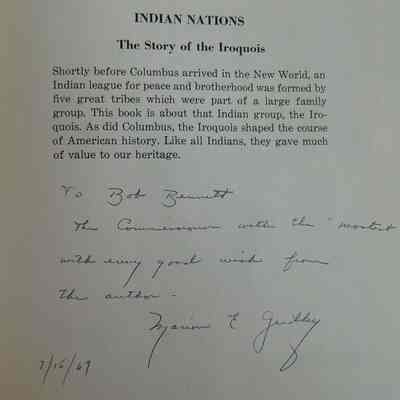 INDIAN NATIONS
The Story of the Iroquois
Shortly before Columbus arrived in the New World, an
Indian league for peace and brotherhood was formed by
five great tribes which were part of a large family
group. This book is about that Indian group, the Iro-
quois. As did Columbus, the Iroquois shaped the course
of American history. Like all Indians, they gave much
of value to our heritage.
To Bob Bennett
The Commissioner with the "mostest
with every good wish from
the author -
Marion E Gridley
7/16/69